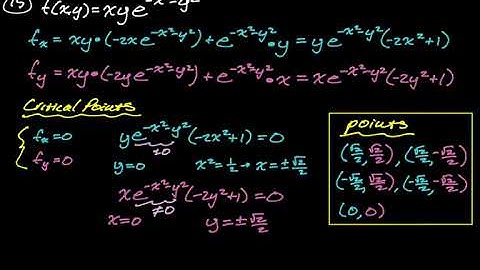 (15) f(x,y)=xye^{-x²-y²}
f_x = xy•(-2xe^{-x²-y²})+e^{-x²-y²}•y=ye^{-x²-y²}(-2x²+1)
f_y = xy•(-2ye^{-x²-y²})+e^{-x²-y²}•x=xe^{-x²-y²}(-2y²+1)
Critical Points
{ f_x=0 ye^{-x²-y²}(-2x²+1)=0
≠0
f_y=0 y=0 x²=1/2→x=±√2/2
xe^{-x²-y²}(-2y²+1)=0
≠0
x=0 y=±√2/2
points
(√2/2,√2/2), (√2/2,-√2/2)
(-√2/2,√2/2), (-√2/2,-√2/2)
(0,0)